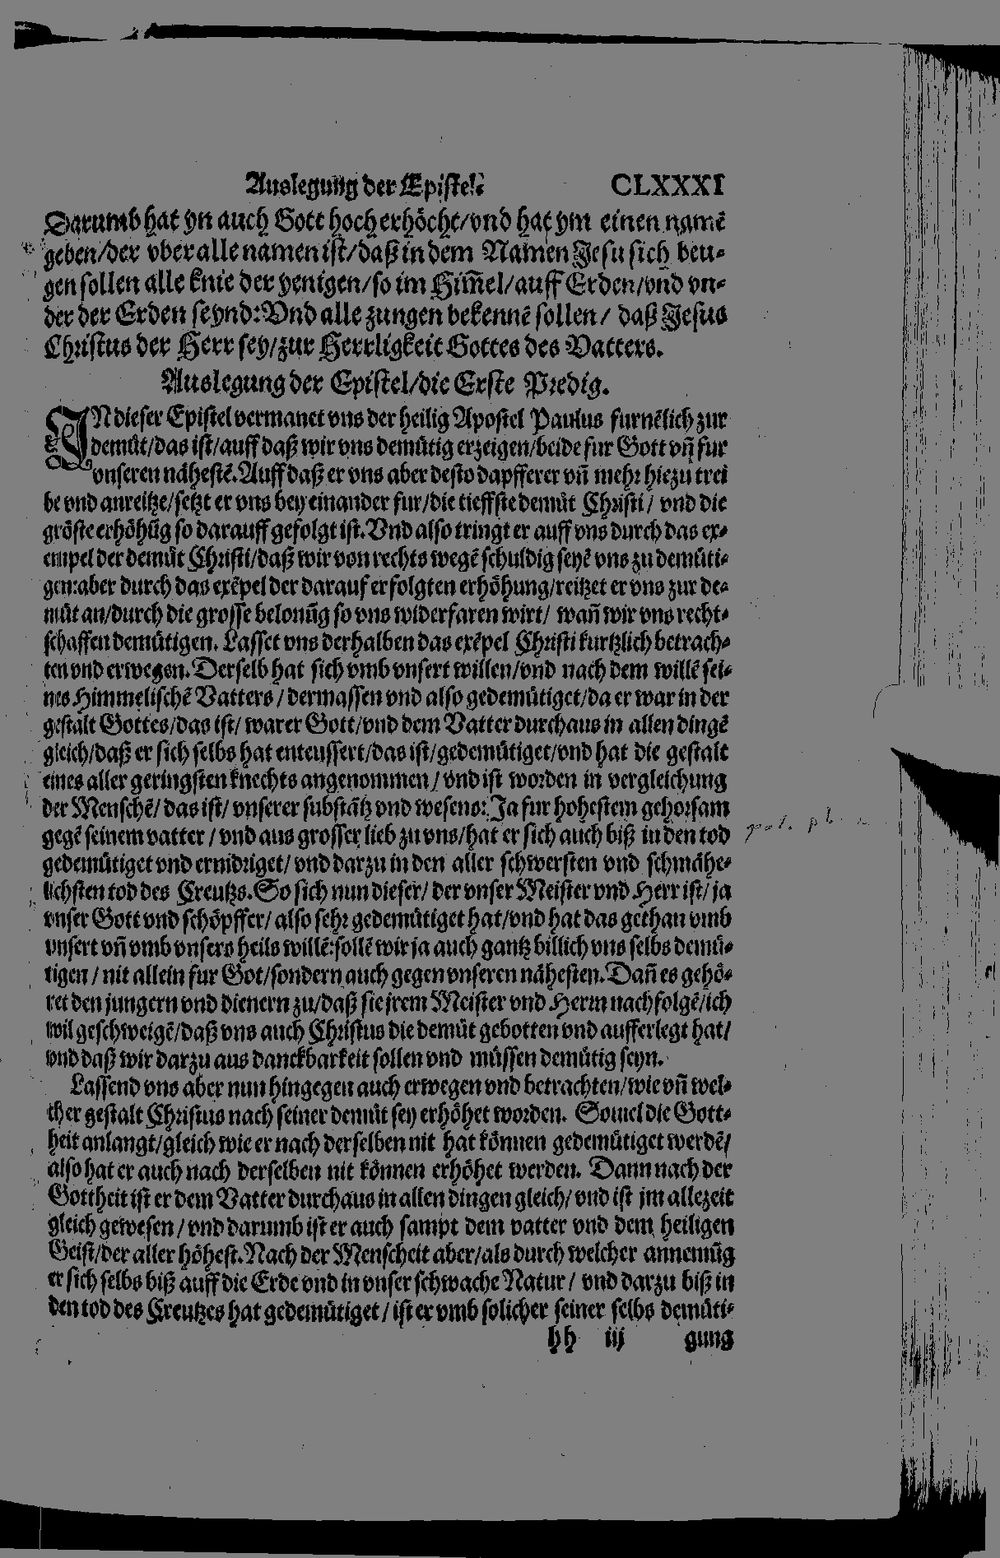 Auslegung der Epistel. CLXXXI
Darumb hat yn auch Gott hoch erhöcht/vnd hat ym einen namē
geben/der vber alle namen ist/daß in dem Namen Jesu sich beu-
gen sollen alle knie der yenigen/so im Him̄el/auff Erden/vnd vn-
der der Erden seynd: Vnd alle zungen bekennē sollen/ daß Jesus
Christus der Herr sey/zur Herrligkeit Gottes des Vatters.
Auslegung der Epistel/die Erste Predig.
IN dieser Epistel vermanet vns der heilig Apostel Paulus furnēlich zur
demůt/das ist/auff daß wir vns demütig erzeigen/beide fur Gott vn̄ fur
vnseren nähestē. Auff daß er vns aber desto dapfferer vn̄ mehr hiezu trei
be vnd anreitze/setzt er vns bey einander fur/die tieffste demůt Christi/ vnd die
gröste erhöhūg so darauff gefolgt ist. Vnd also tringt er auff vns durch das ex-
empel der demůt Christi/daß wir von rechts wegē schuldig seyē vns zu demüti-
gen: aber durch das exēpel der darauf erfolgten erhöhung/reitzet er vns zur de-
můt an/durch die grosse belonūg so vns widerfaren wirt/ wan̄ wir vns recht-
schaffen demütigen. Lasset vns derhalben das exēpel Christi kurtzlich betrach-
ten vnd erwegen. Derselb hat sich vmb vnsert willen/vnd nach dem willē sei-
nes Himmelischē Vatters/ dermassen vnd also gedemütiget/da er war in der
gestalt Gottes/das ist/ warer Gott/vnd dem Vatter durchaus in allen dingē
gleich/daß er sich selbs hat enteussert/das ist/gedemütiget/vnd hat die gestalt
eines aller geringsten knechts angenommen/ vnd ist worden in vergleichung
der Menschē/ das ist/ vnserer substātz vnd wesens: Ja fur hohestem gehorsam
gegē seinem vatter/ vnd aus grosser lieb zu vns/hat er sich auch biß in den tod
gedemütiget vnd ernidriget/ vnd darzu in den aller schwersten vnd schmähe-
lichsten tod des Creutzs. So sich nun dieser/ der vnser Meister vnd Herr ist/ ja
vnser Gott vnd schöpffer/ also sehr gedemütiget hat/vnd hat das gethan vmb
vnsert vn̄ vmb vnsers heils willē: sollē wir ja auch gantz billich vns selbs demü-
tigen/ nit allein fur Got/sondern auch gegen vnseren nähesten. Dan̄ es gehö-
ret den jungern vnd dienern zu/daß sie jrem Meister vnd Herrn nachfolgē/ich
wil geschweigē/daß vns auch Christus die demůt gebotten vnd aufferlegt hat/
vnd daß wir darzu aus danckbarkeit sollen vnd müssen demütig seyn.
Lassend vns aber nun hingegen auch erwegen vnd betrachten/wie vn̄ wel-
cher gestalt Christus nach seiner demůt sey erhöhet worden. Souiel die Gott-
heit anlangt/gleich wie er nach derselben nit hat können gedemütiget werdē/
also hat er auch nach derselben nit können erhöhet werden. Dann nach der
Gottheit ist er dem Vatter durchaus in allen dingen gleich/ vnd ist jm allezeit
gleich gewesen/ vnd darumb ist er auch sampt dem vatter vnd dem heiligen
Geist/der aller höhest. Nach der Menscheit aber/als durch welcher annemūg
er sich selbs biß auff die Erde vnd in vnser schwache Natur/ vnd darzu biß in
den tod des Creutzes hat gedemütiget/ ist er vmb solicher seiner selbs demüti-
hh iij gung